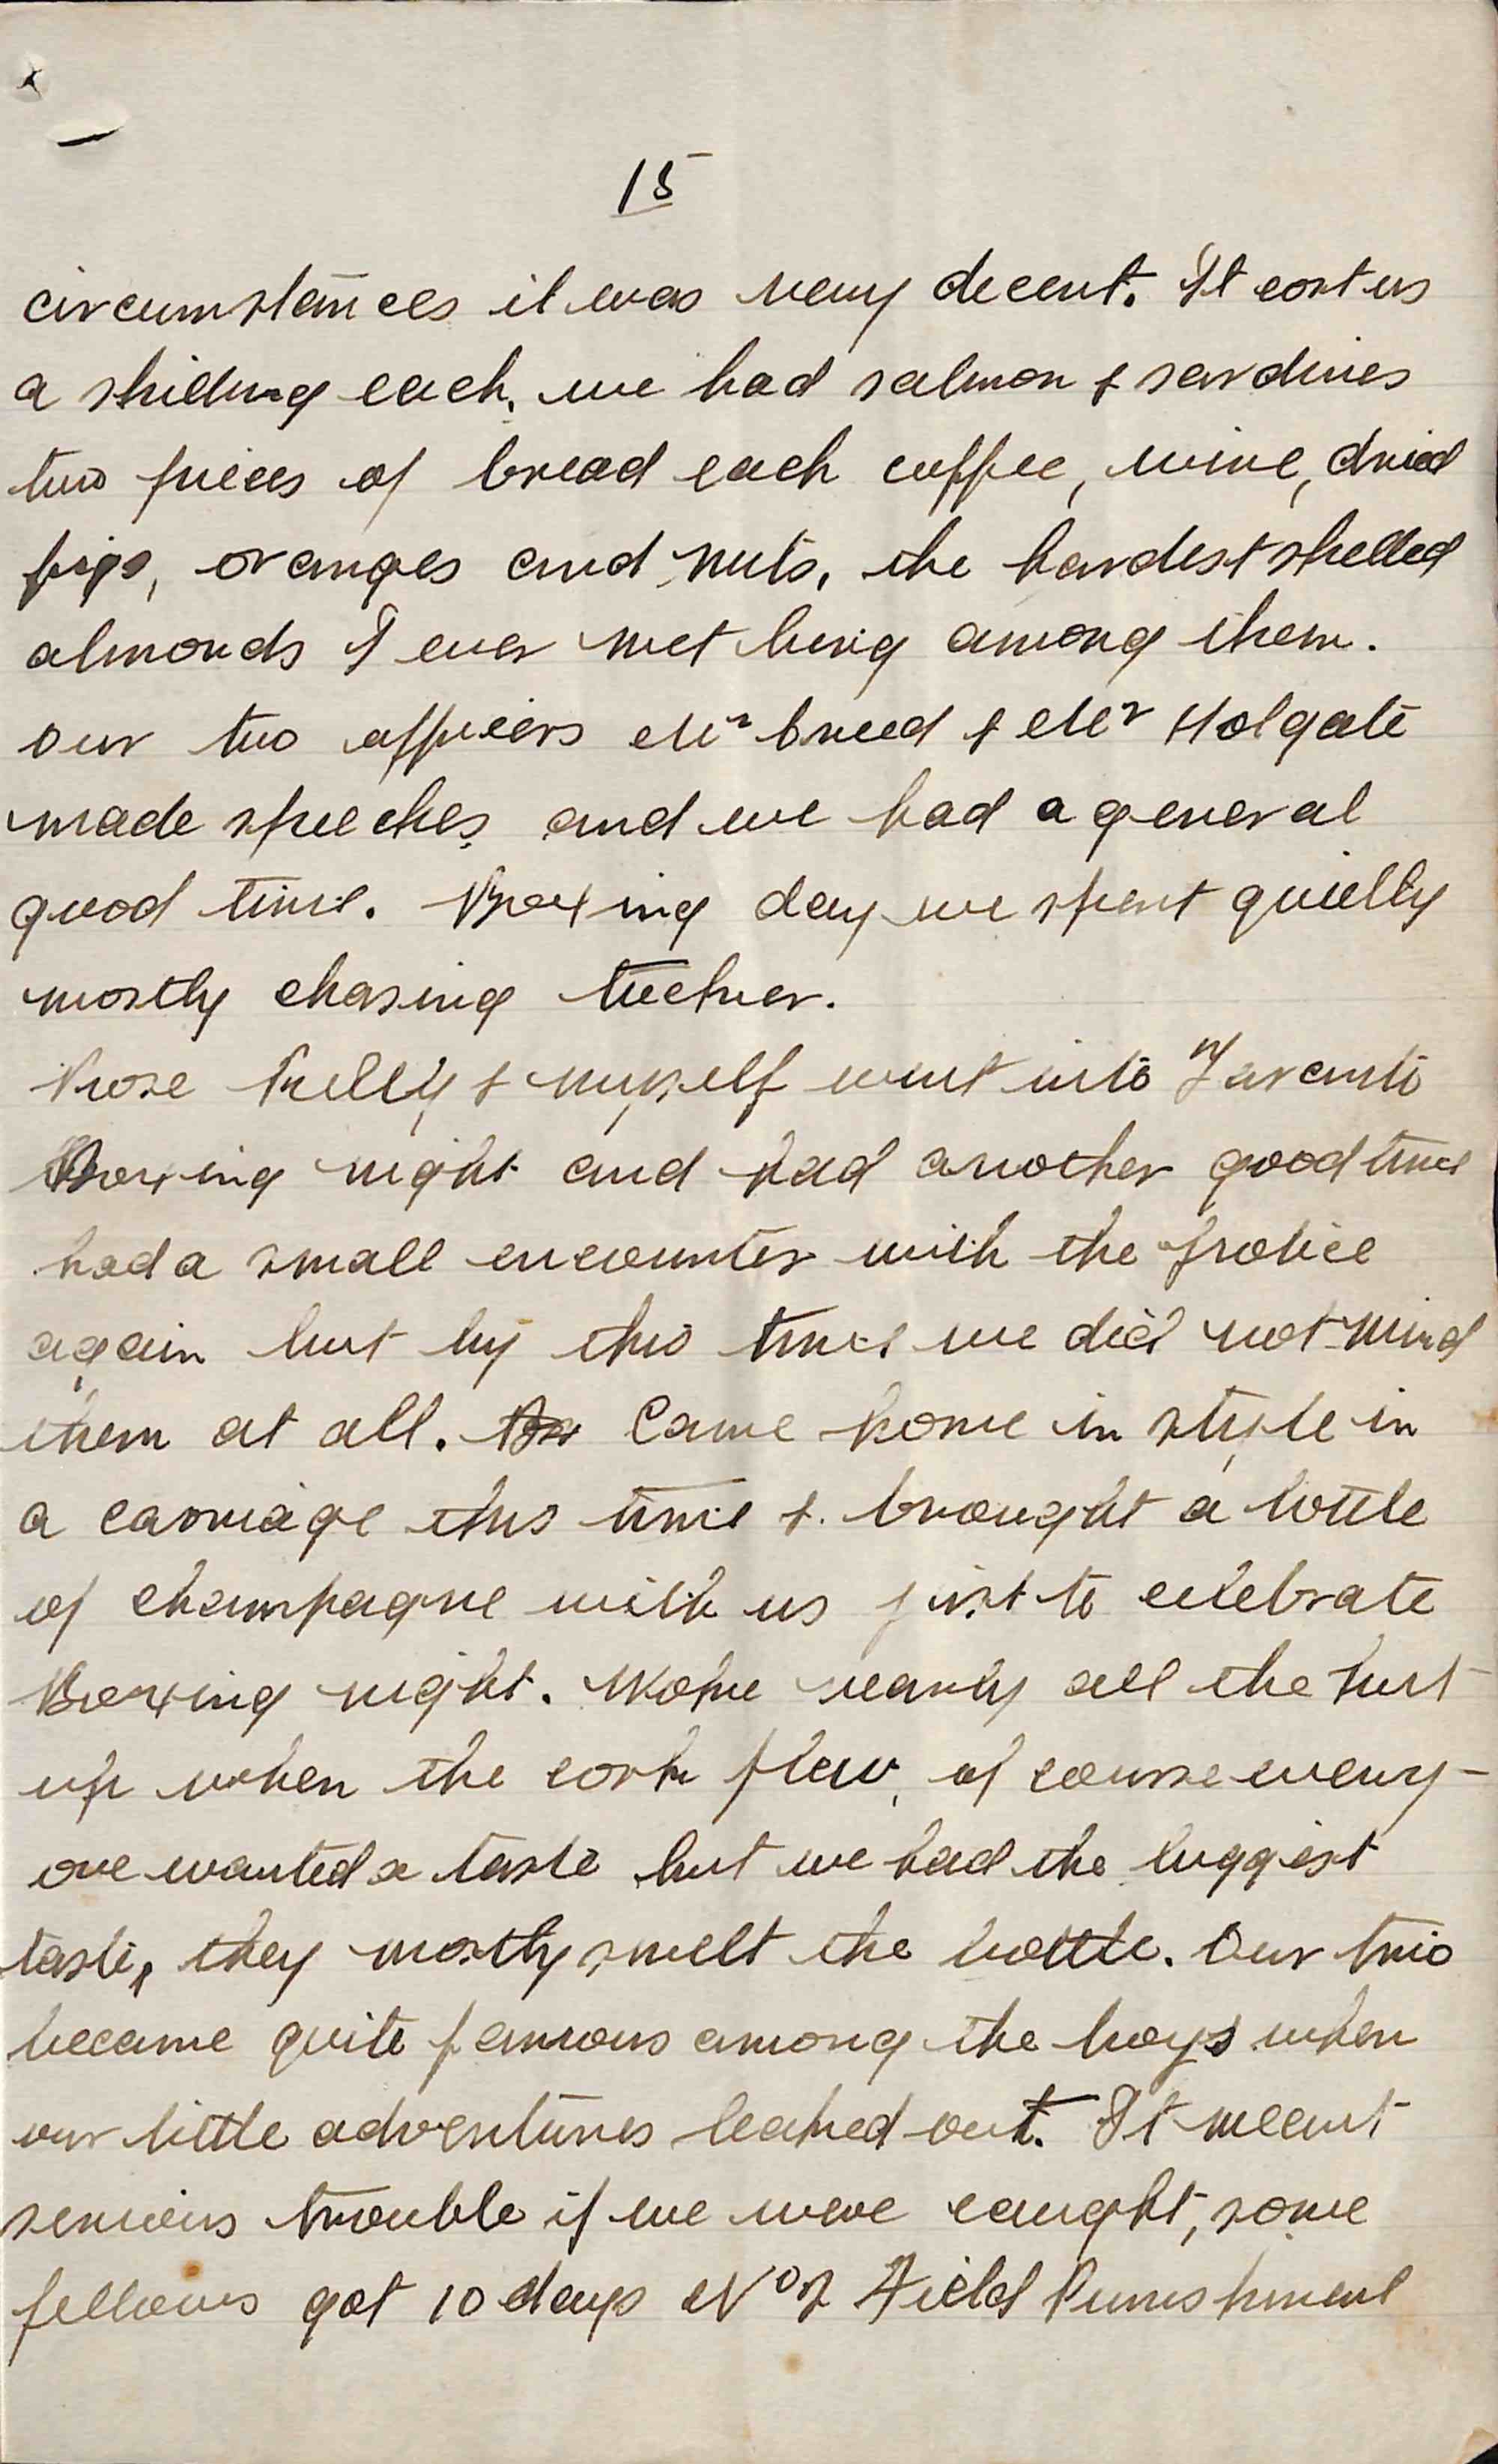 15
circumstances it was very decent. It cost us
a shilling each. we had salmon & sardines
two pieces of bread each coffee, wine, dried
figs, oranges and nuts, the hardest shelled
almonds I ever met being among them.
Our two officers Mr Creed & Mr Holgate
made speeches and we had a general
good time. Boxing day we spent quietly
mostly chasing tucker.
Rose Kelly & myself went into Taranto
Boxing night and had another good time
had a small encounter with the police
again but by this time we did not mind
them at all. Came home in style in
a carriage this time & brought a bottle
of champagne with us just to celebrate
Boxing night. Woke nearly all the hut
up when the cork flew, of course every-
one wanted a taste but we had the biggest
taste, they mostly smelt the bottle. Our trio
became quite famous among the boys when
our little adventures leaked out. It meant
serious trouble if we were caught, some
fellows got 10 days No 2 Field Punishment